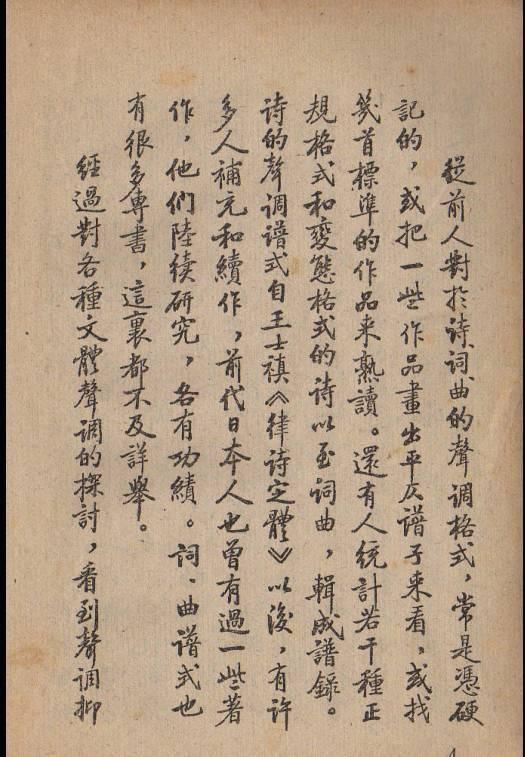 從前人對於詩、詞、曲的聲調格式，常是憑硬
記的，或把一些作品畫出平仄譜子来看，或找
幾首標準的作品来熟讀。還有人統計若干種正
規格式和變態格式的詩以至詞曲，輯成譜錄。
詩的聲調谱式自王士禛《律诗定體》以後，有許
多人補充和續作，前代日本人也曾有過一些著
作，他們陸续研究，各有功績。詞、曲谱式也
有很多專書，這裏都不及詳舉。
經過對各種文體聲調的探討，看到聲调抑